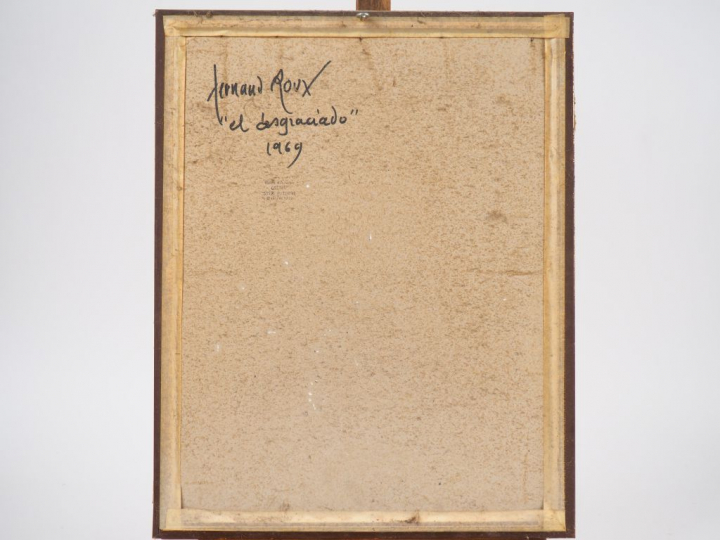 Fernand Roux
"el desgraciado"
1969